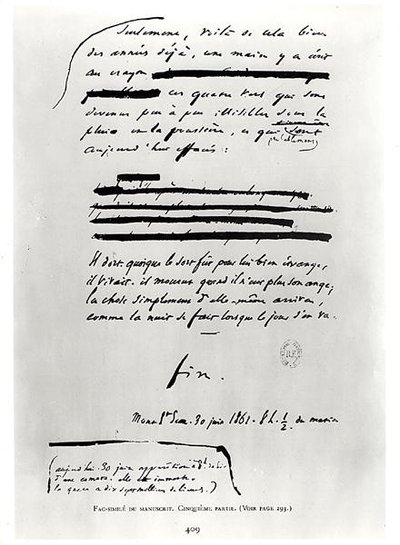 Seulement, voilà de cela bien
des années déjà, une main y a écrit
au crayon
ces quatre vers qui sont
devenus peu à peu illisibles sous la
pluie et la poussière, et qui sont
probablement
aujourd'hui effacés :
Il dort. quoique le sort fût pour lui bien étrange,
il vivait. il mourut quand il n'eut plus son ange;
la chose simplement d'elle-même arriva,
comme la nuit se fait lorsque le jour s'en va.
fin.
Mont St Jean. 30 juin 1861. 8 h. ½ du matin
(aujourd'hui 30 juin apparition
d'une comète. elle est immense
la queue a dix sept millions de lieues.)
FAC-SIMILÉ DU MANUSCRIT. CINQUIÈME PARTIE. (VOIR PAGE 293.)
409